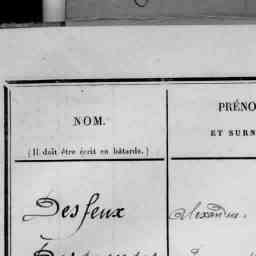 NOM.
PRÉNO
ET SURN
(Il doit être écrit en bâtarde.)
Desfeux
Alexandre.